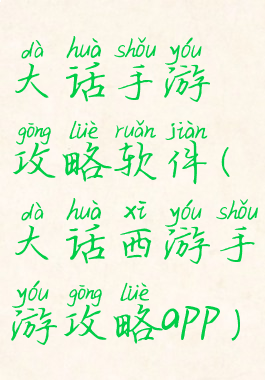 dà huà shǒu yóu
大话手游
gōng lüè ruǎn jiàn
攻略软件(
dà huà xī yóu shǒu
大话西游手
yóu gōng lüè
游攻略app)